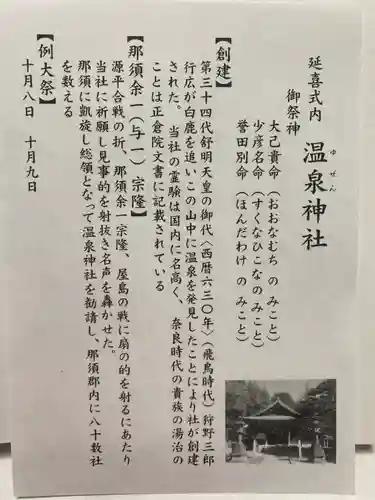 延喜式内 温泉神社
ゆぜん
御祭神
大己貴命(おおなむち のみこと)
少彦名命(すくなひこなのみこと)
誉田別命(ほんだわけ のみこと)
【創建】
第三十四代舒明天皇の御代〈西暦六三〇年〉(飛鳥時代)狩野三郎
行広が白鹿を追いこの山中に温泉を発見したことにより社が創建
された。 当社の霊験は国内に名高く、奈良時代の貴族の湯治の
ことは正倉院文書に記載されている
【那須余一(与一)宗隆】
源平合戦の折、那須余一宗隆、屋島の戦に扇の的を射るにあたり
当社に祈願し見事的を射抜き名声を轟かせた。
那須に凱旋し総領となって温泉神社を勧請し、那須郡内に八十数社
を数える
【例大祭】
十月八日 十月九日